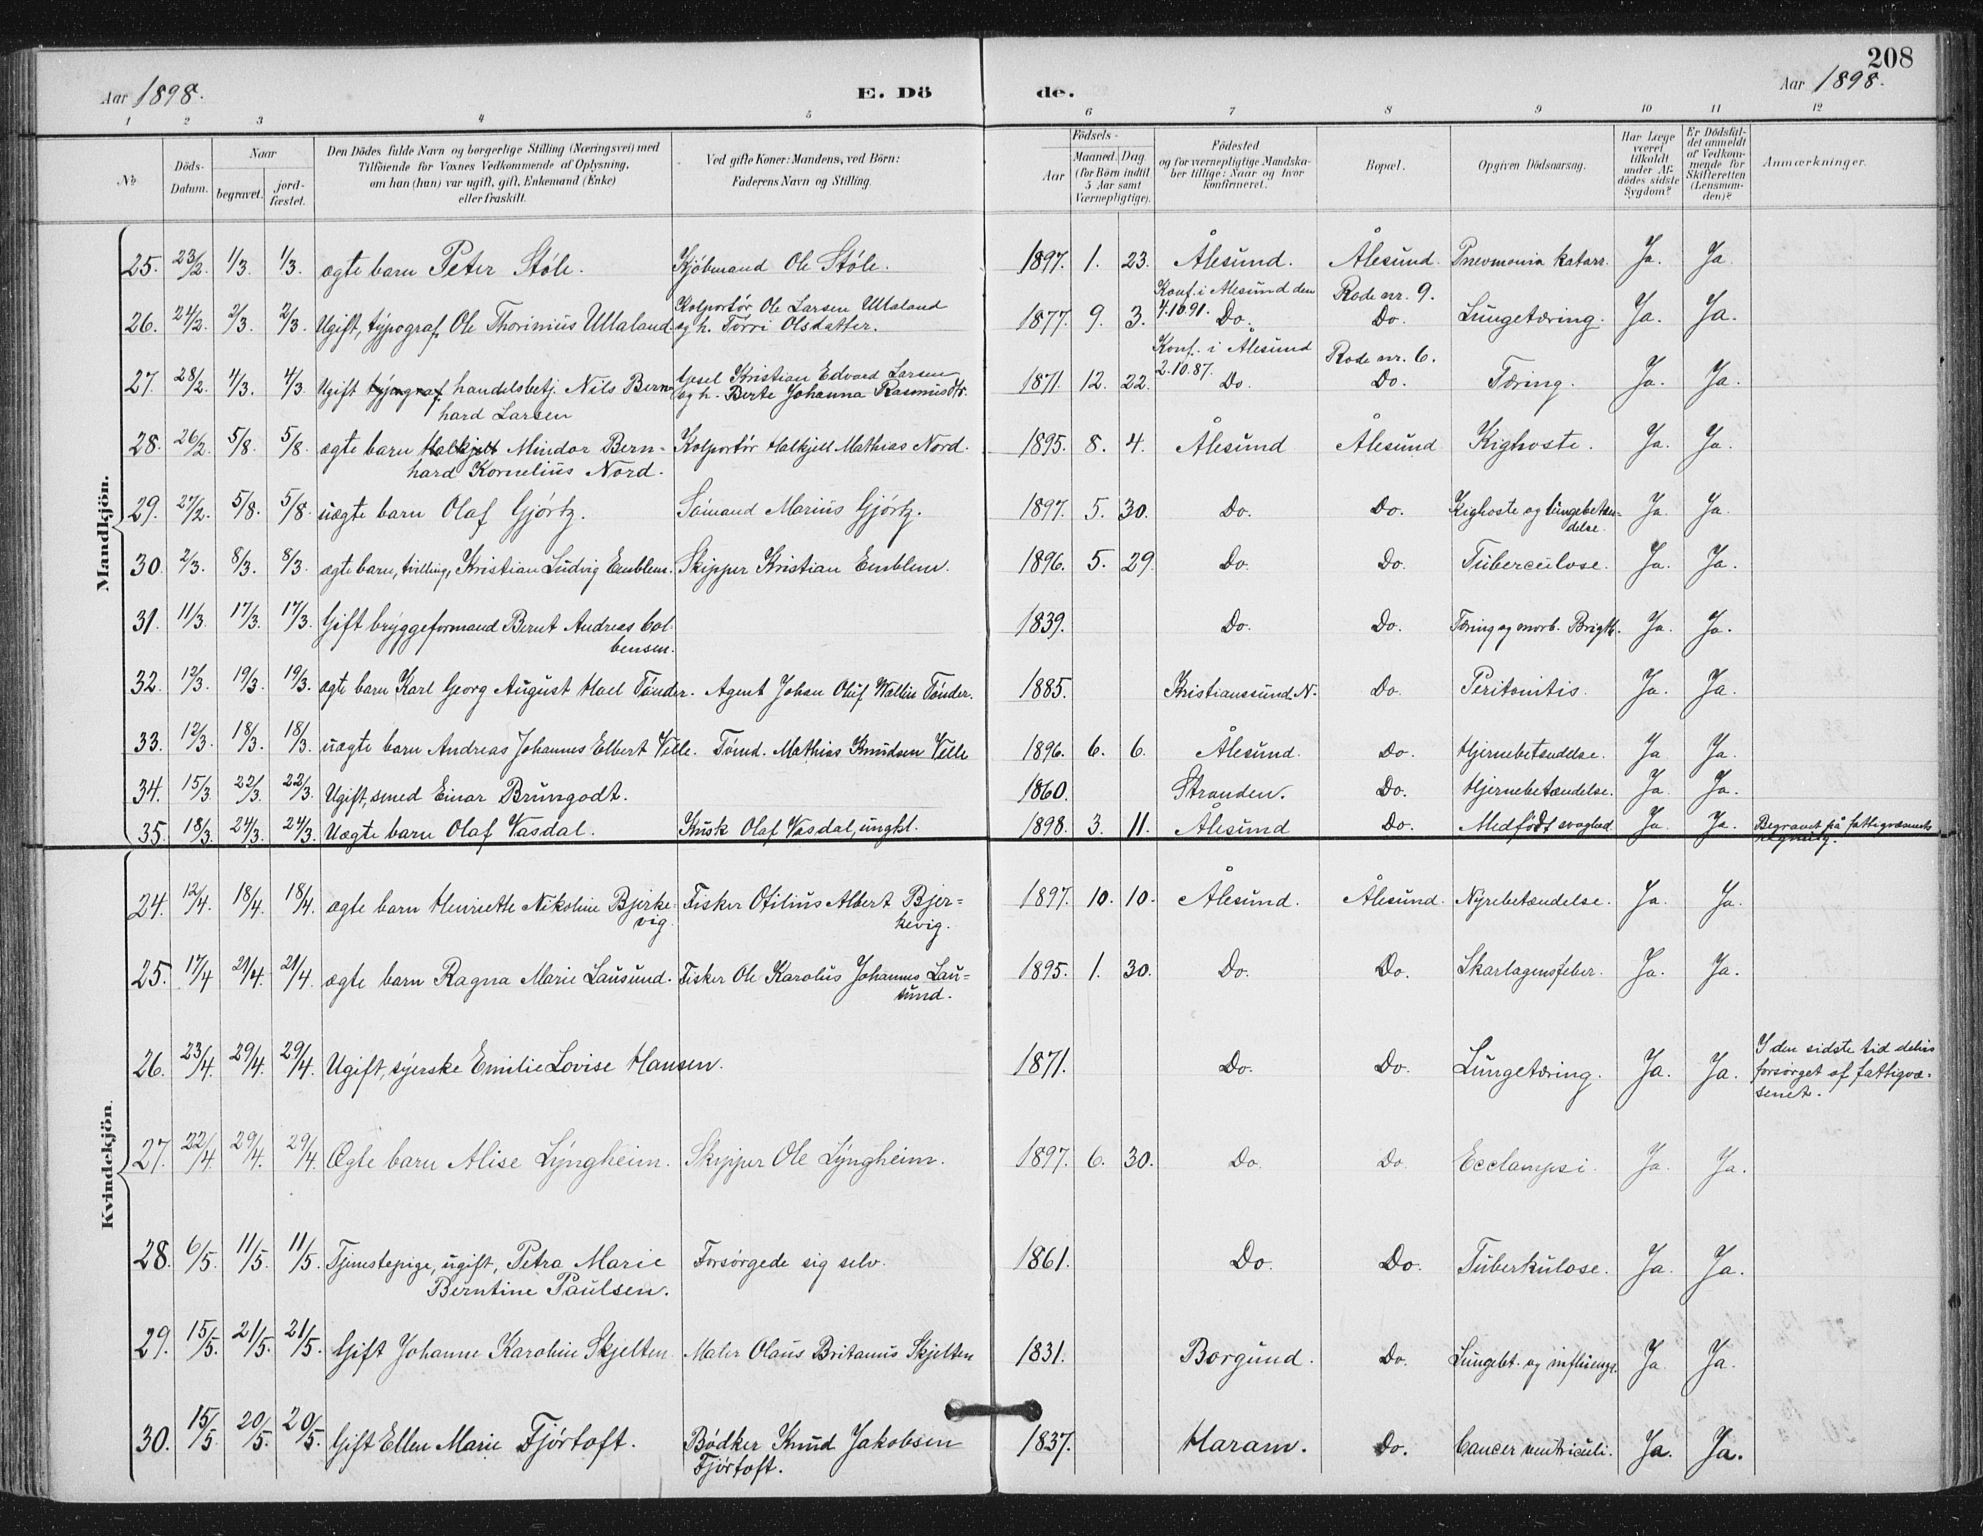 208
Aar 1898.
E. Dö de.
Aar 1898.
1 2 3 4 5 6 7 8 9 10 11 12
No
Döds-Datum.
Naar
begravet.
jord-fæstet.
Den Dödes fulde Navn og borgerlige Stilling (Næringsvei) med
Tilföiende for Voxnes Vedkommende af Oplysning,
om han (hun) var ugift, gift, Enkemand (Enke)
eller fraskilt.
Ved gifte Koner: Mandens, ved Börn:
Faderens Navn og Stilling.
Födsels-
Aar
Maaned. Dag.
(for Börn indtil
5 Aar samt
Værnepligtige).
Födested
og for værnepligtige Mandska-
ber tillige: Naar og hvor
konfirmeret.
Bopæl.
Opgiven Dödsaarsag.
Har Læge
været
tilkaldt
under Af-
dödes sidste
Sygdom?
Er Dödsfal-
det anmeldt
af Vedkom-
mende for
Skifteretten
(Lensman-
den)?
Anmærkninger.
Mandkjön.
25. 23/2. 1/3. 1/3. ægte barn Peter Støle. Kjöbmand Ole Støle. 1897. 1. 23. Ålesund. Ålesund. Pnevmonia katarr. Ja. Ja
26. 24/2. 2/3. 2/3. Ugift, typograf Ole Thorinius Ullaland Kolportør Ole Larsen Ullaland
og h. Torri Olsdatter. 1877. 9. 3. Konf. i Ålesund den
4.10.91. Do. Rode nr. 9.
Do. Lungetæring. Ja. Ja.
27. 28/2. 4/3. 4/3. Ugift typograf handelsbetj. Nils Bern-
hard Larsen Kristian Edvard Larsen
og h. Berte Johanna Rasmusdtr. 1871. 12. 22. Konf. i Ålesund
2.10.87. Do. Rode nr. 6.
Do. Tæring. Ja. Ja.
28. 26/2. 5/8. 5/8. ægte barn Halkjell Mindor Bern-
hard Kornelius Nord. Kolportør Halkjell Mathias Nord. 1895. 8. 4. Ålesund Ålesund. Kighoste. Ja. Ja.
29. 27/2. 5/8. 5/8. uægte barn Olaf Gjörtz. Sömand Marius Gjörtz. 1897. 5. 30. Do. Do. Kighoste og lungebetæn-
delse. Ja. Ja.
30. 2/3. 8/3. 8/3. ægte barn, tvilling, Kristian Ludvig Emblem. Skipper Kristian Emblem. 1896. 5. 29. Do. Do. Tuberculose. Ja. Ja.
31. 11/3. 17/3. 17/3. Gift bryggeformand Bernt Andreas Col-
bensen. 1839. Do. Do. Tæring og morb. Brigth. Ja. Ja.
32. 12/3. 19/3. 19/3. ægte barn Karl Georg August Hoel Tönder. Agent Johan Oluf Wallin Tönder. 1885. Kristianssund N. Do. Peritonitis. Ja. Ja.
33. 12/3. 18/3. 18/3. uægte barn Andreas Johannes Elbert Velle. Tömd. Mathias Knudsen Velle 1896. 6. 6. Ålesund. Do. Hjernebetændelse. Ja Ja.
34. 15/3. 22/3. 22/3. Ugift, smed Einar Brungodt. 1860. Stranden. Do. Hjernebetændelse. Ja Ja.
35. 18/3. 24/3. 24/3. Uægte barn Olaf Vasdal. Kusk Olaf Vasdal, ungkl. 1898. 3. 11. Ålesund Do. Medfödt svaghed Ja Ja. Begravet på fattigvæsenets
regning.
Kvindekjön.
24. 12/4. 18/4. 18/4. ægte barn Henriette Nikoline Bjerke-
vig. Fisker Otilius Albert Bjer-
kevig. 1897. 10. 10. Ålesund. Ålesund. Nyrebetændelse. Ja. Ja.
25. 17/4 21/4. 21/4. ægte barn Ragna Marie Lausund. Fisker Ole Karolus Johannes Lau-
sund. 1895. 1. 30. Do. Do. Skarlagensfeber. Ja. Ja.
26. 23/4. 29/4. 29/4. Ugift, syerske Emilie Lovise Hansen. 1871. Do. Do. Lungetæring. Ja. Ja. I den sidste tid delvis
forsørget af fattigvæ-
senet.
27. 22/4 29/4. 29/4. Ægte barn Alise Lyngheim. Skipper Ole Lyngheim. 1897. 6. 30. Do. Do Ecclampsi. Ja. Ja.
28. 6/5. 11/5. 11/5. Tjenestepige, ugift, Petra Marie
Berntine Paulsen. Forsörgede sig selv. 1861. Do. Do. Tuberkulose. Ja. Ja.
29. 15/5. 21/5. 21/5. Gift Johanne Karoline Skjelten Maler Olaus Britanus Skjelten 1831. Borgund. Do. Lungebt. og influenza. Ja Ja.
30. 15/5. 20/5. 20/5. Gift Ellen Marie Fjörtoft. Bödker Knud Jakobsen
Fjörtoft. 1837. Haram. Do. Cancer ventriculi. Ja. Ja.